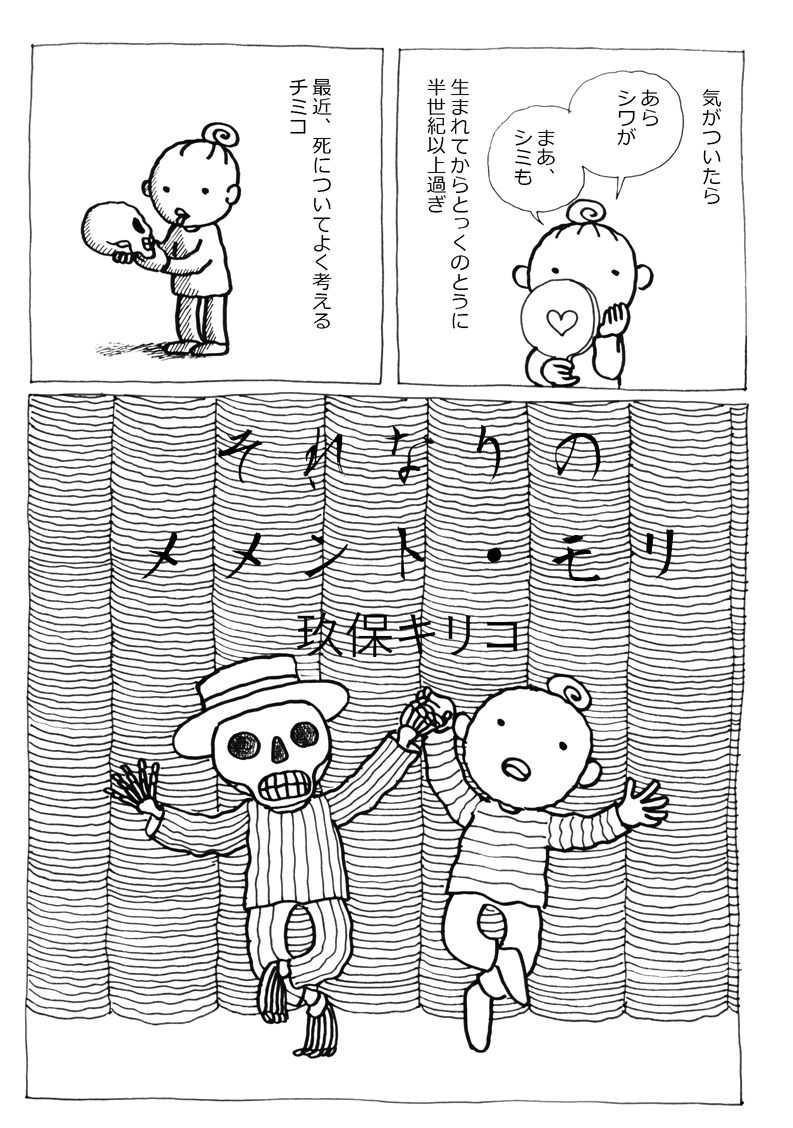 気がついたら
あら
シワが
まあ、
シミも
生まれてからとっくのとうに
半世紀以上過ぎ
最近、死についてよく考える
チミコ
それなりの
メメント・モリ
玖保キリコ